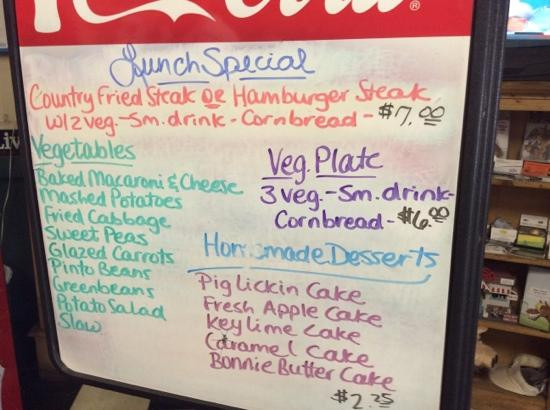 Lunch Special
Country Fried Steak or Hamburger Steak
w/2 veg.-Sm.drink-Cornbread-$7.00
Vegetables
Baked Macaroni & Cheese
Mashed Potatoes
Fried Cabbage
Sweet Peas
Glazed Carrots
Pinto Beans
Greenbeans
Potato Salad
Slaw
Veg. Plate
3 veg.-Sm.drink-
Cornbread-$6.00
Homemade Desserts
Pig Lickin Cake
Fresh Apple Cake
Key lime Cake
Caramel Cake
Bonnie Butter Cake
$2.25